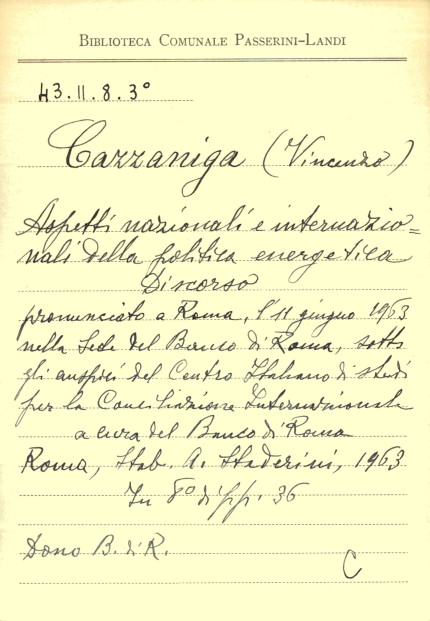 BIBLIOTECA COMUNALE PASSERINI-LANDI
43.II.8.3°
Cazzaniga (Vincenzo)
Aspetti nazionali e internazio=
nali della politica energetica
Discorso
pronunciato a Roma, l'11 giugno 1963
nella Sede del Banco di Roma, sotto
gli auspici del Centro Italiano di studi
per la Conciliazione Internazionale
a cura del Banco di Roma
Roma, Stab. A. Staderini, 1963
In 8° di pp. 36
Dono B. di R.
C